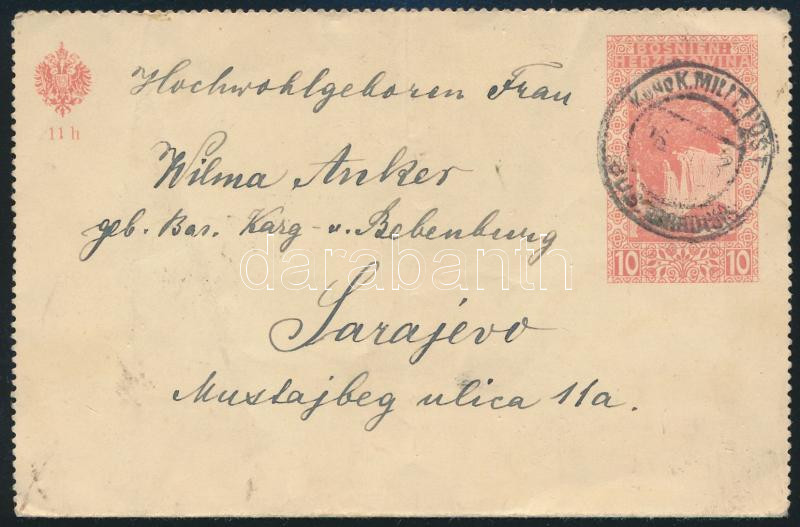 BOSNIEN-
HERZEGOWINA
K. MILIT. POST
11 h
10 10
Hochwohlgeboren Frau
Wilma Anker
geb. Bar. Karg - v. Bebenburg
Sarajévo
Mustajbeg ulica 11a.
darabanth